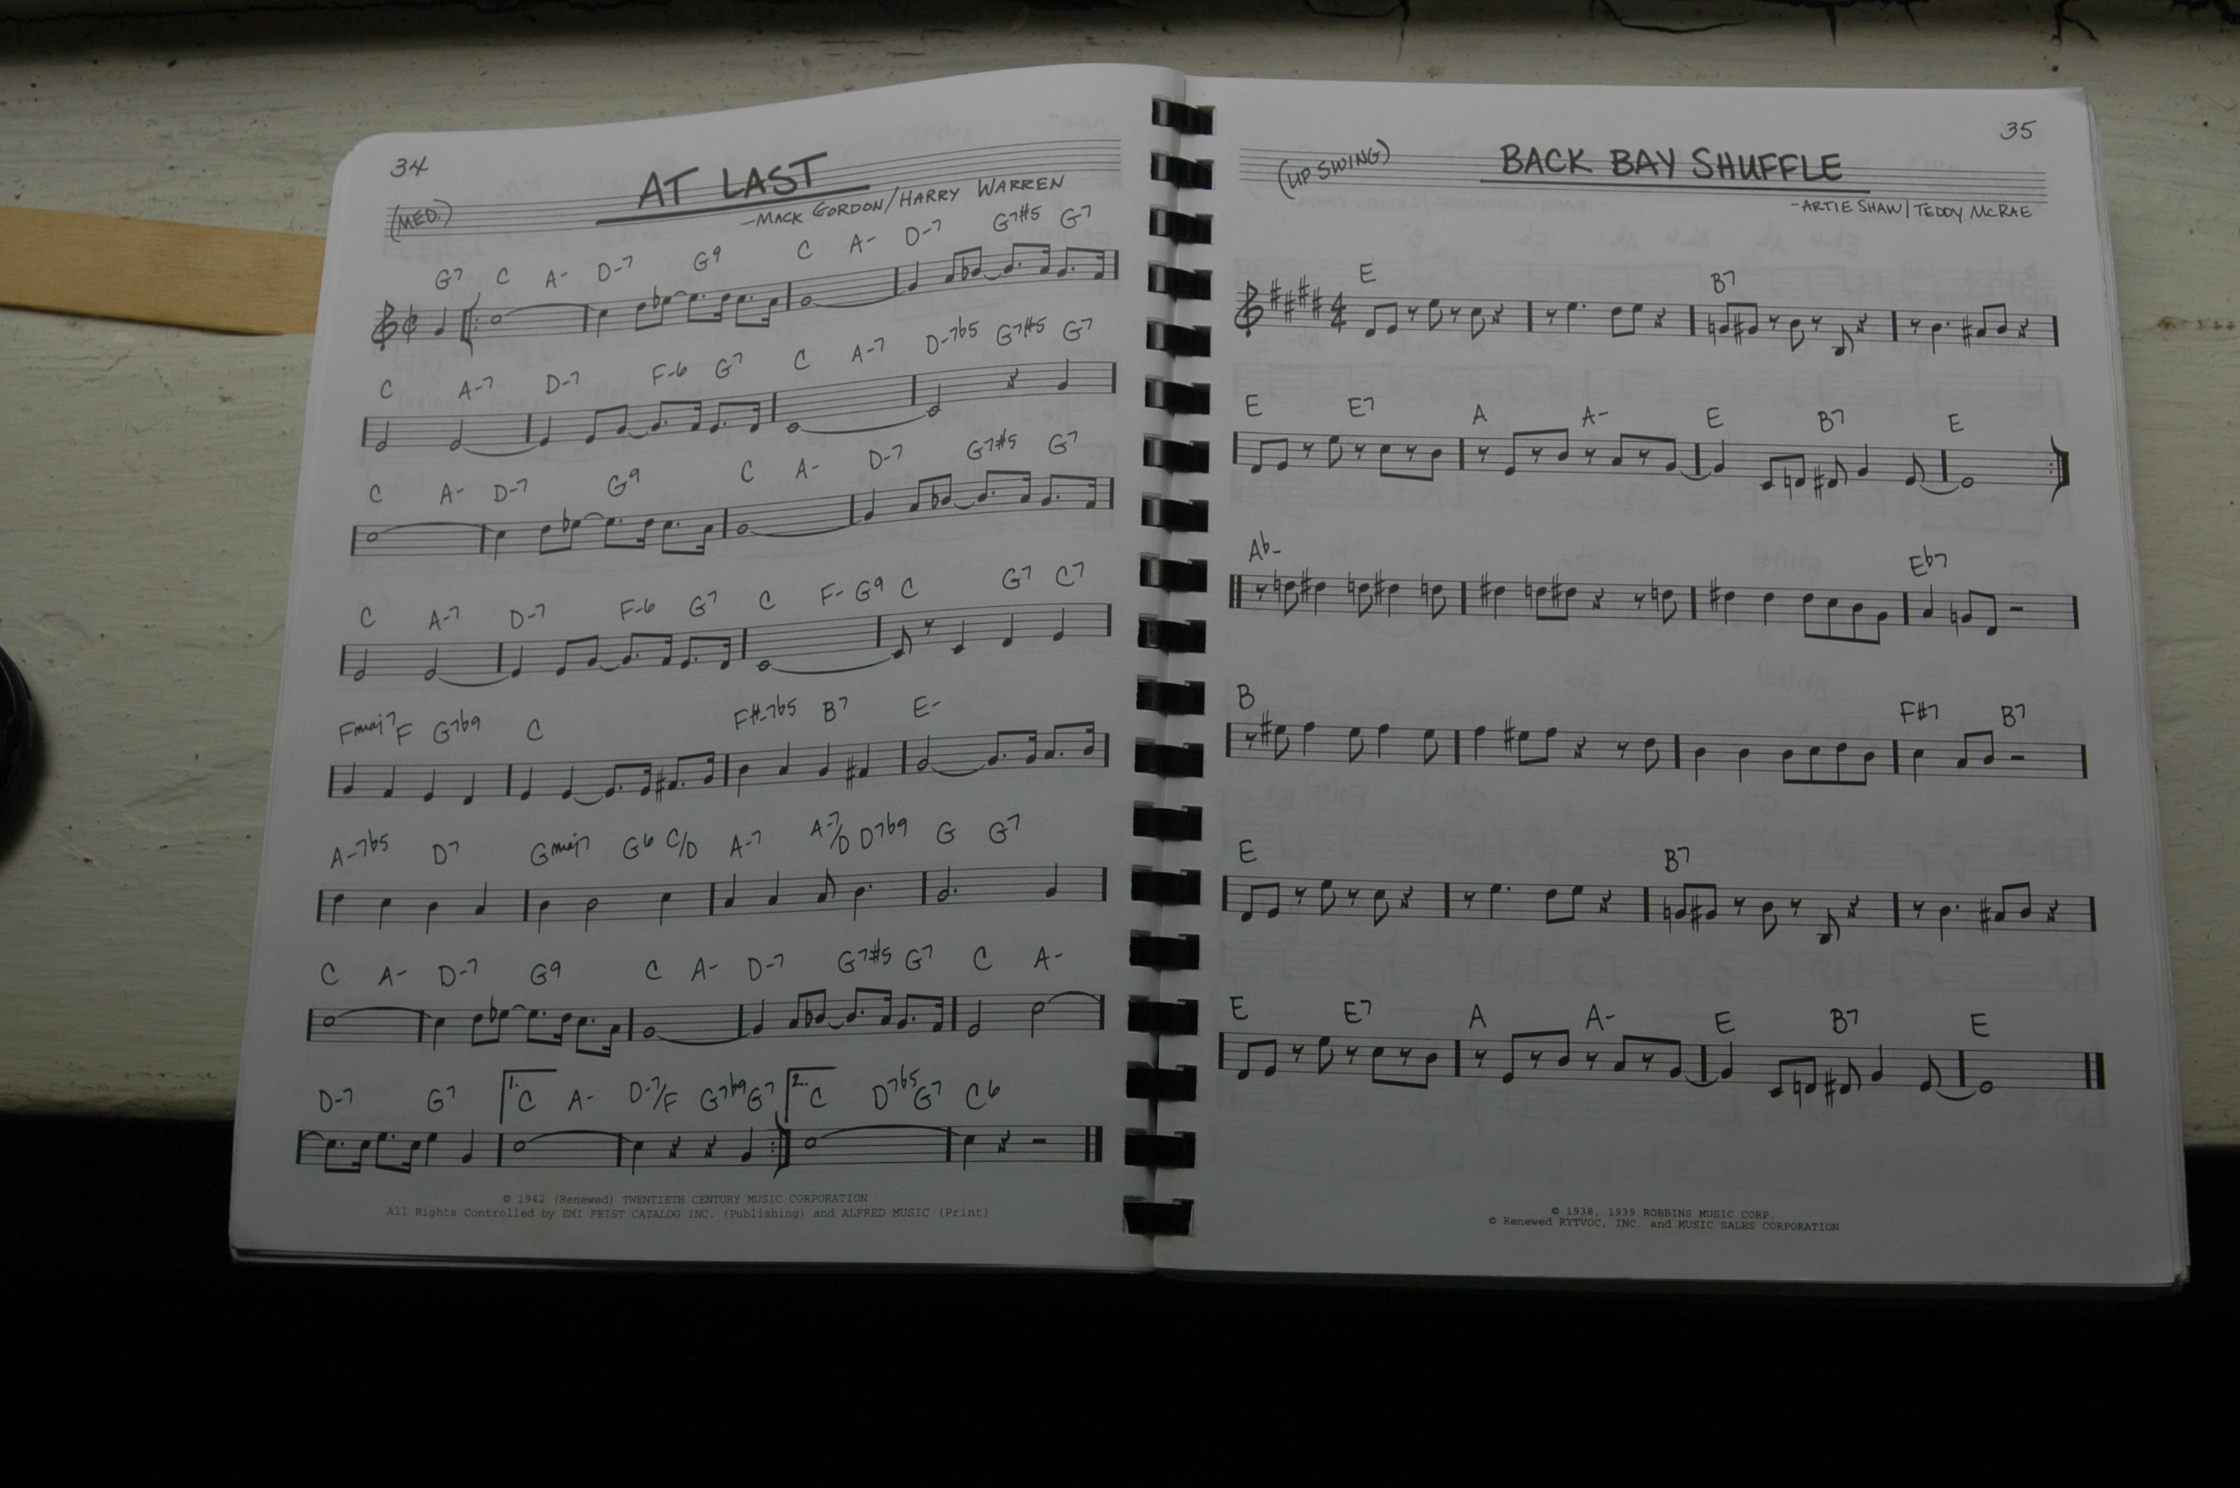 34
AT LAST
(MED.)
-MACK GORDON/HARRY WARREN
G7 C A- D-7 G9 C A- D-7 G7#5 G7
C A-7 D-7 F-6 G7 C A-7 D-7b5 G7#5 G7
C A- D-7 G9 C A- D-7 G7#5 G7
C A-7 D-7 F-6 G7 C F- G9 C G7 C7
Fmaj7 F G7b9 C F#-7b5 B7 E-
A-7b5 D7 Gmaj7 G6 C/D A-7 A-7/D D7b9 G G7
C A- D-7 G9 C A- D-7 G7#5 G7 C A-
D-7 G7 1. C A- D-7/F G7b9 G7 2. C D7b5 G7 C6
© 1942 (Renewed) TWENTIETH CENTURY MUSIC CORPORATION
All Rights Controlled by EMI FEIST CATALOG INC. (Publishing) and ALFRED MUSIC (Print)
35
BACK BAY SHUFFLE
(UP SWING)
-ARTIE SHAW/TEDDY MCRAE
E B7
E E7 A A- E B7 E
Ab- Eb7
B F#7 B7
E B7
E E7 A A- E B7 E
© 1938, 1939 ROBBINS MUSIC CORP.
© Renewed RYTVOC, INC. and MUSIC SALES CORPORATION